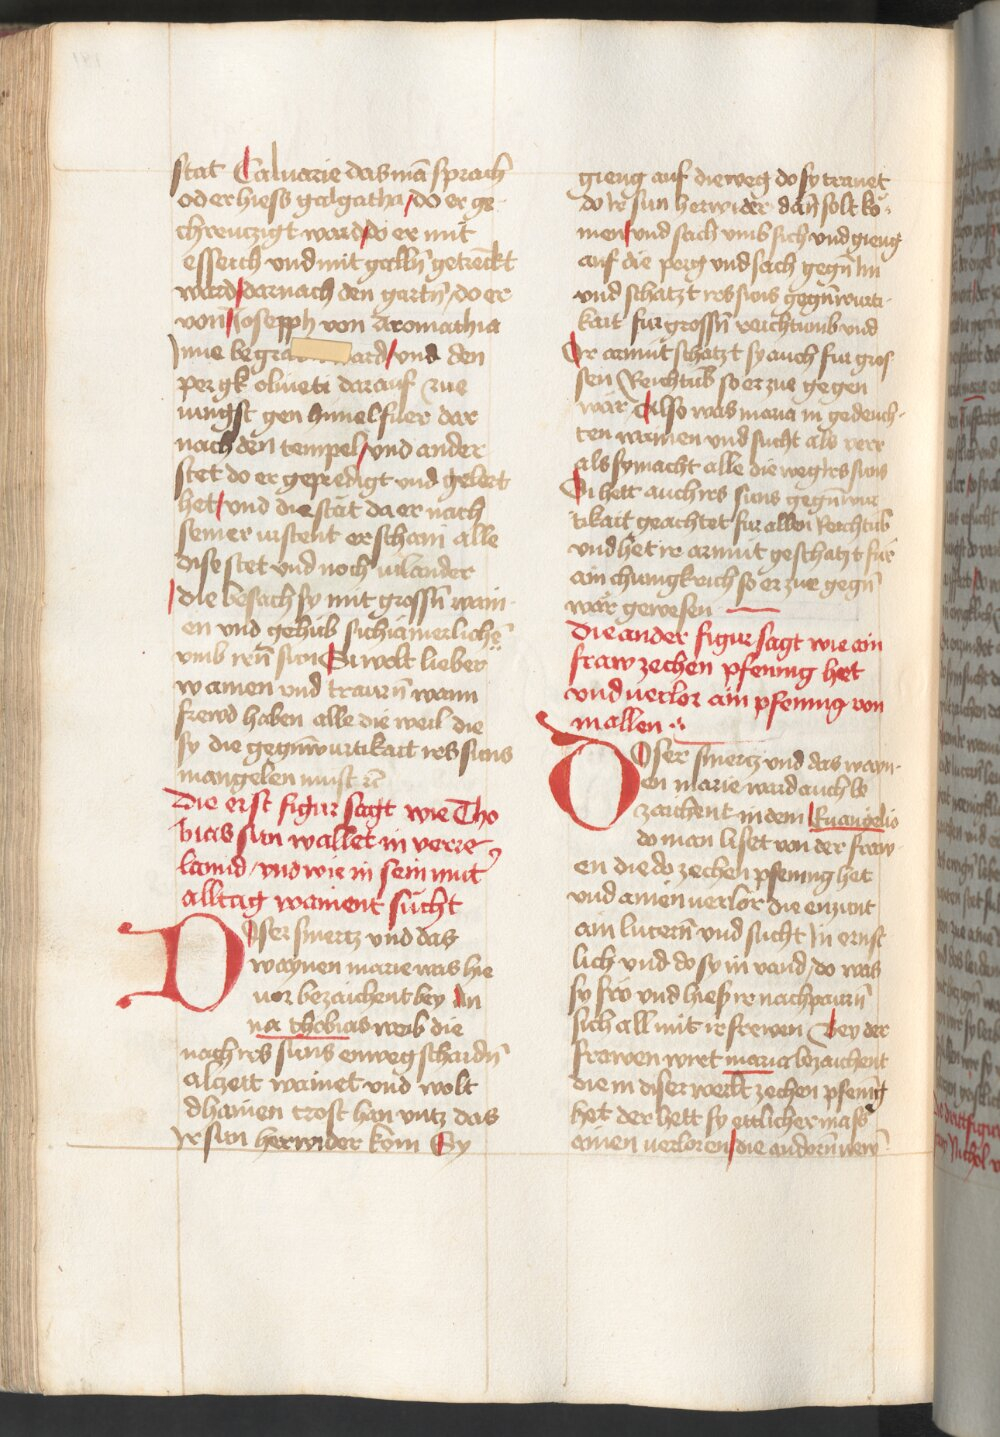 stat Caluarie das mā sprach
oder hiess galgatha / do er ge-
chreuczigt ward / do er mit
esseich vnd mit galln̄ getrēckt
ward / darnach den gartn̄ / do er
von Josepph von Aromathia
Inne begra ard / vnd den
pergk oliueti darauf zue
iungst gen himel fuer dar
nach den tempel / vnd ander
stet do er gepredigt vnd gelert
het / vnd die stat da er nach
seiner urstent erschain alle
dise stet vnd noch vil ander
die besach sy mit grossn̄ wain-
en vnd gehub sich iamerlichē
vmb iren̄ sun Si wolt lieber
wainen vnd traurn̄ wann
frewd haben alle die weil die
sy die gegn̄wurtikait irs suns
mangelen must
die erst figur sagt wie Tho
bias sun wallet in verre
lannd / vnd wie in sein mut
alltag wainent sucht
Diser smertz vnd das
waynen marie was hie
uor bezaichent bey An
na thobias weib die
nach irs suns enweg schaidn̄
alczeit wainet vnd wolt
dhainen trost han vntz das
Ir sun herwider kom Sy
gieng auf die weg do sy trauet
do ir sun herwider dan̄ solt ko-
men / vnd sach vmb sich vnd gieng
auf die perg vnd sach gegn̄ Im
vnd schatzt irs suns gegn̄wurti-
kait fur grossn̄ reichtumb vnd
Ir armut schatzt sy auch fur gros
sen Reichtub so er zue gegen
wār Also was maria in gedench-
ten wainen vnd sucht als verr
als sy macht alle die weg irs suns
Si hett auch irs suns gegn̄wur
tikait geachtet fur allen Reichtub
vnd het ir armut geschatzt fur
ain chunigkreich so er zue gegn̄
wār gewesen
die ander figur sagt wie ain
fraw zechen pfennig het
vnd uerlor ain pfennig von
in allen
Diser smertz vnd das wayn-
en marie ward auch be
zaichent in dem Ewangelio
do man liset von der fraw-
en die do zechen pfennig het
vnd ainen uerlor die enzunt
ain lucern̄ vnd sucht In ernst
lich vnd do sy in vand / do was
sy fro vnd hiess ir nachpaurn̄
sich all mit ir frewen Bey der
frawen wirt maria bezaichent
die in diser werlt zechen pfennig
het der hett sy ettlicher mass
ainen uerloren / die andern̄ newn̄